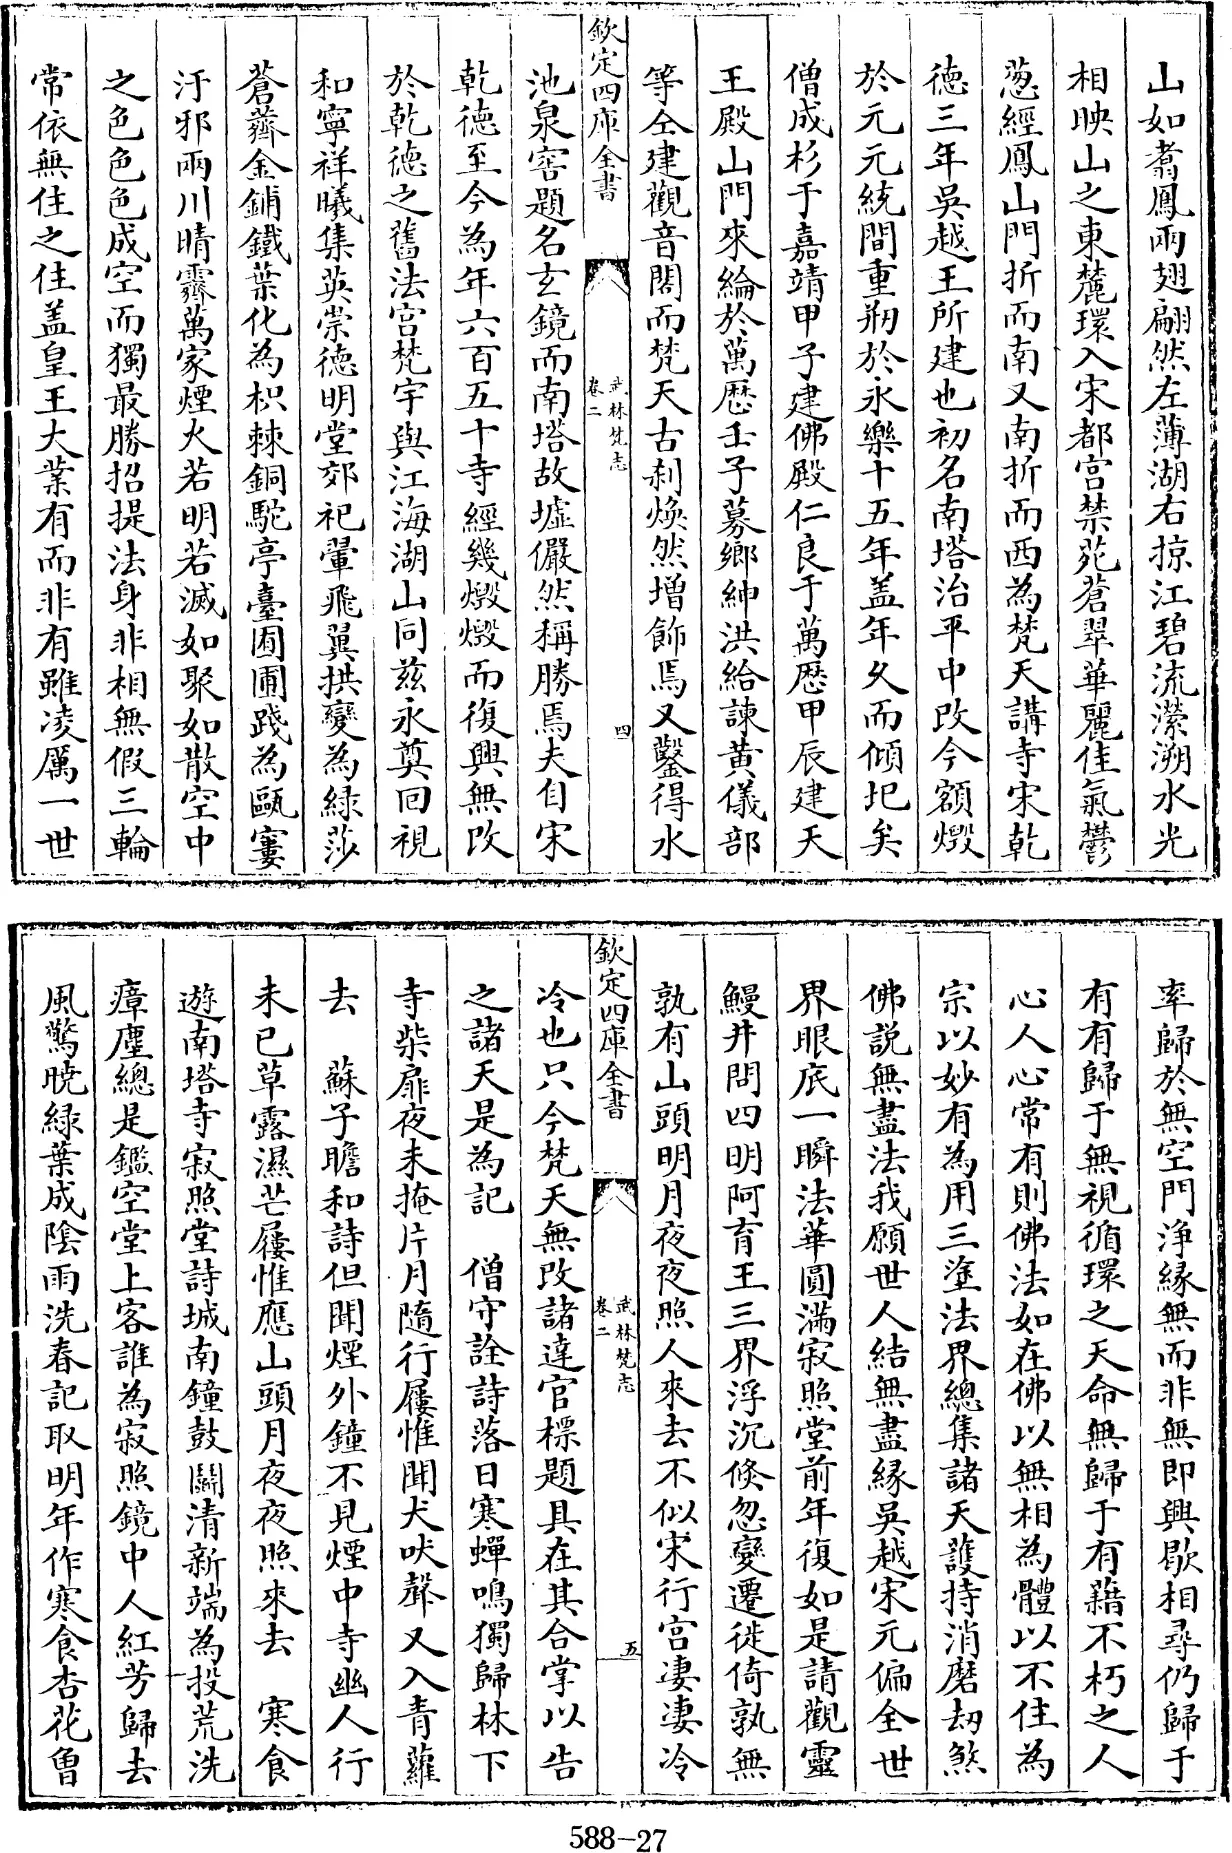 山如翥鳳兩翅翩然左薄湖右掠江碧流濚溯水光
相映山之東麓環入宋都宮禁苑蒼翠華麗佳氣鬱
葱經鳳山門折而南又南折而西為梵天講寺宋乾
徳三年吳越王所建也初名南塔治平中改今額燬
於元元統間重剏於永樂十五年盖年久而傾圮矣
僧成杉于嘉靖甲子建佛殿仁良于萬厯甲辰建天
王殿山門來綸於萬厯壬子募鄉紳洪給諫黄儀部
等仝建觀音閣而梵天古刹煥然增飾焉又鑿得水
欽定四庫全書
武林梵志
卷二
四
池泉窖題名玄鏡而南塔故墟儼然稱勝焉夫自宋
乾徳至今為年六百五十寺經幾燬燬而復興無改
於乾徳之舊法宫梵宇與江海湖山同兹永奠回視
和寧祥曦集英崇徳明堂郊祀翬飛翼拱變為緑莎
蒼薺金鋪鐵葉化為枳棘銅駝亭臺囿圃踐為甌窶
汙邪兩川晴霽萬家煙火若明若滅如聚如散空中
之色色色成空而獨最勝招提法身非相無假三輪
常依無住之住盖皇王大業有而非有雖凌厲一世
率歸於無空門浄緣無而非無即興歇相尋仍歸于
有有歸于無視循環之天命無歸于有藉不朽之人
心人心常有則佛法如在佛以無相為體以不住為
宗以妙有為用三塗法界總集諸天護持消磨刼煞
佛説無盡法我願世人結無盡緣吳越宋元偏全世
界眼底一瞬法華圓滿寂照堂前年復如是請觀靈
鰻井問四明阿育王三界浮沉倐忽變遷徙倚孰無
孰有山頭明月夜夜照人來去不似宋行宫凄凄冷
欽定四庫全書
武林梵志
卷二
五
冷也只今梵天無改諸達官標題具在其合掌以告
之諸天是為記　僧守詮詩落日寒蟬鳴獨歸林下
寺柴扉夜未掩片月隨行屨惟聞犬吠聲又入青蘿
去　蘇子瞻和詩但聞煙外鐘不見煙中寺幽人行
未已草露濕芒屨惟應山頭月夜夜照來去　寒食
遊南塔寺寂照堂詩城南鐘鼓鬬清新端為投荒洗
瘴塵總是鑑空堂上客誰為寂照鏡中人紅芳歸去
風驚曉緑葉成陰雨洗春記取明年作寒食杏花曾
588-27